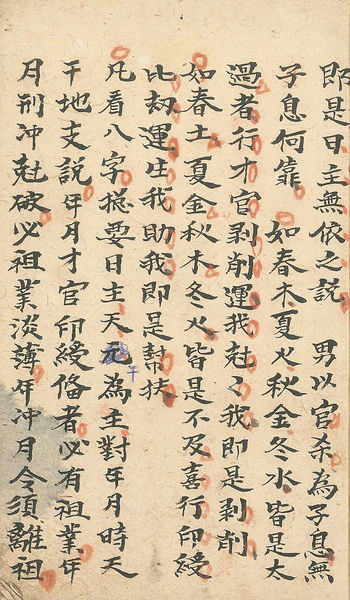 即是日主無依之説　男以官杀為子息無
子息何靠　如春木夏火秋金冬水皆是太
過者行才官剥削運我尅〻我即是剥削
如春土夏金秋木冬火皆是不及喜行印綬
比刼運生我助我即是幇扶
凡看八字揔要日主天元為主對年月時天
干地支説年月才官印綬俻者必有祖業年
月刑冲尅破必祖業淡薄年冲月令須離祖